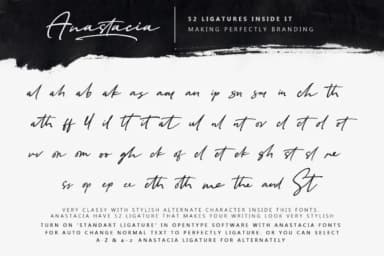 Anastacia
52 LIGATURES INSIDE IT
MAKING PERFECTLY BRANDING
al ah ab ak as am an ip sn sm in ch th
ath ff ll il tt it at ul nl nt or el et ol ot
on om oo gh ck of cl ct ek gk st sl re
ss op ep ee eth oth me the and St
VERY CLASSY WITH STYLISH ALTERNATE CHARACTER INSIDE THIS FONTS.
ANASTACIA HAVE 52 LIGATURE THAT MAKES YOUR WRITING LOOK VERY STYLISH
TURN ON 'STANDART LIGATURE' IN OPENTYPE SOFTWARE WITH ANASTACIA FONTS
FOR AUTO CHANGE NORMAL TEXT TO PERFECTLY LIGATURE, OR YOU CAN SELECT
A-Z & a-z ANASTACIA LIGATURE FOR ALTERNATELY